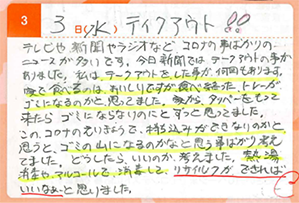 3
3日(水) テイクアウト!!
テレビや新聞やラジオなど コロナの事ばかりの
ニュースが多いです。今日新聞では テークアウトの事か
ありました。私は、テークアウトをした事が、何回もあります。
家で食べるのは、おいしいですが、食べ終った、トレーが
ゴミになるのかと、思ってました。家から、タッパーをもって
来たら ゴミにならないのにとずっと思ってました。
この、コロナのえいきょうで、持ち込みができないのかと
思うと、ゴミの山になるのかなと思う事ばかり考え
てました。どうしたら、いいのか、考えました。熱湯
消毒や、アルコールで、消毒して、リサイクルができれば
いいなぁーと思いました。